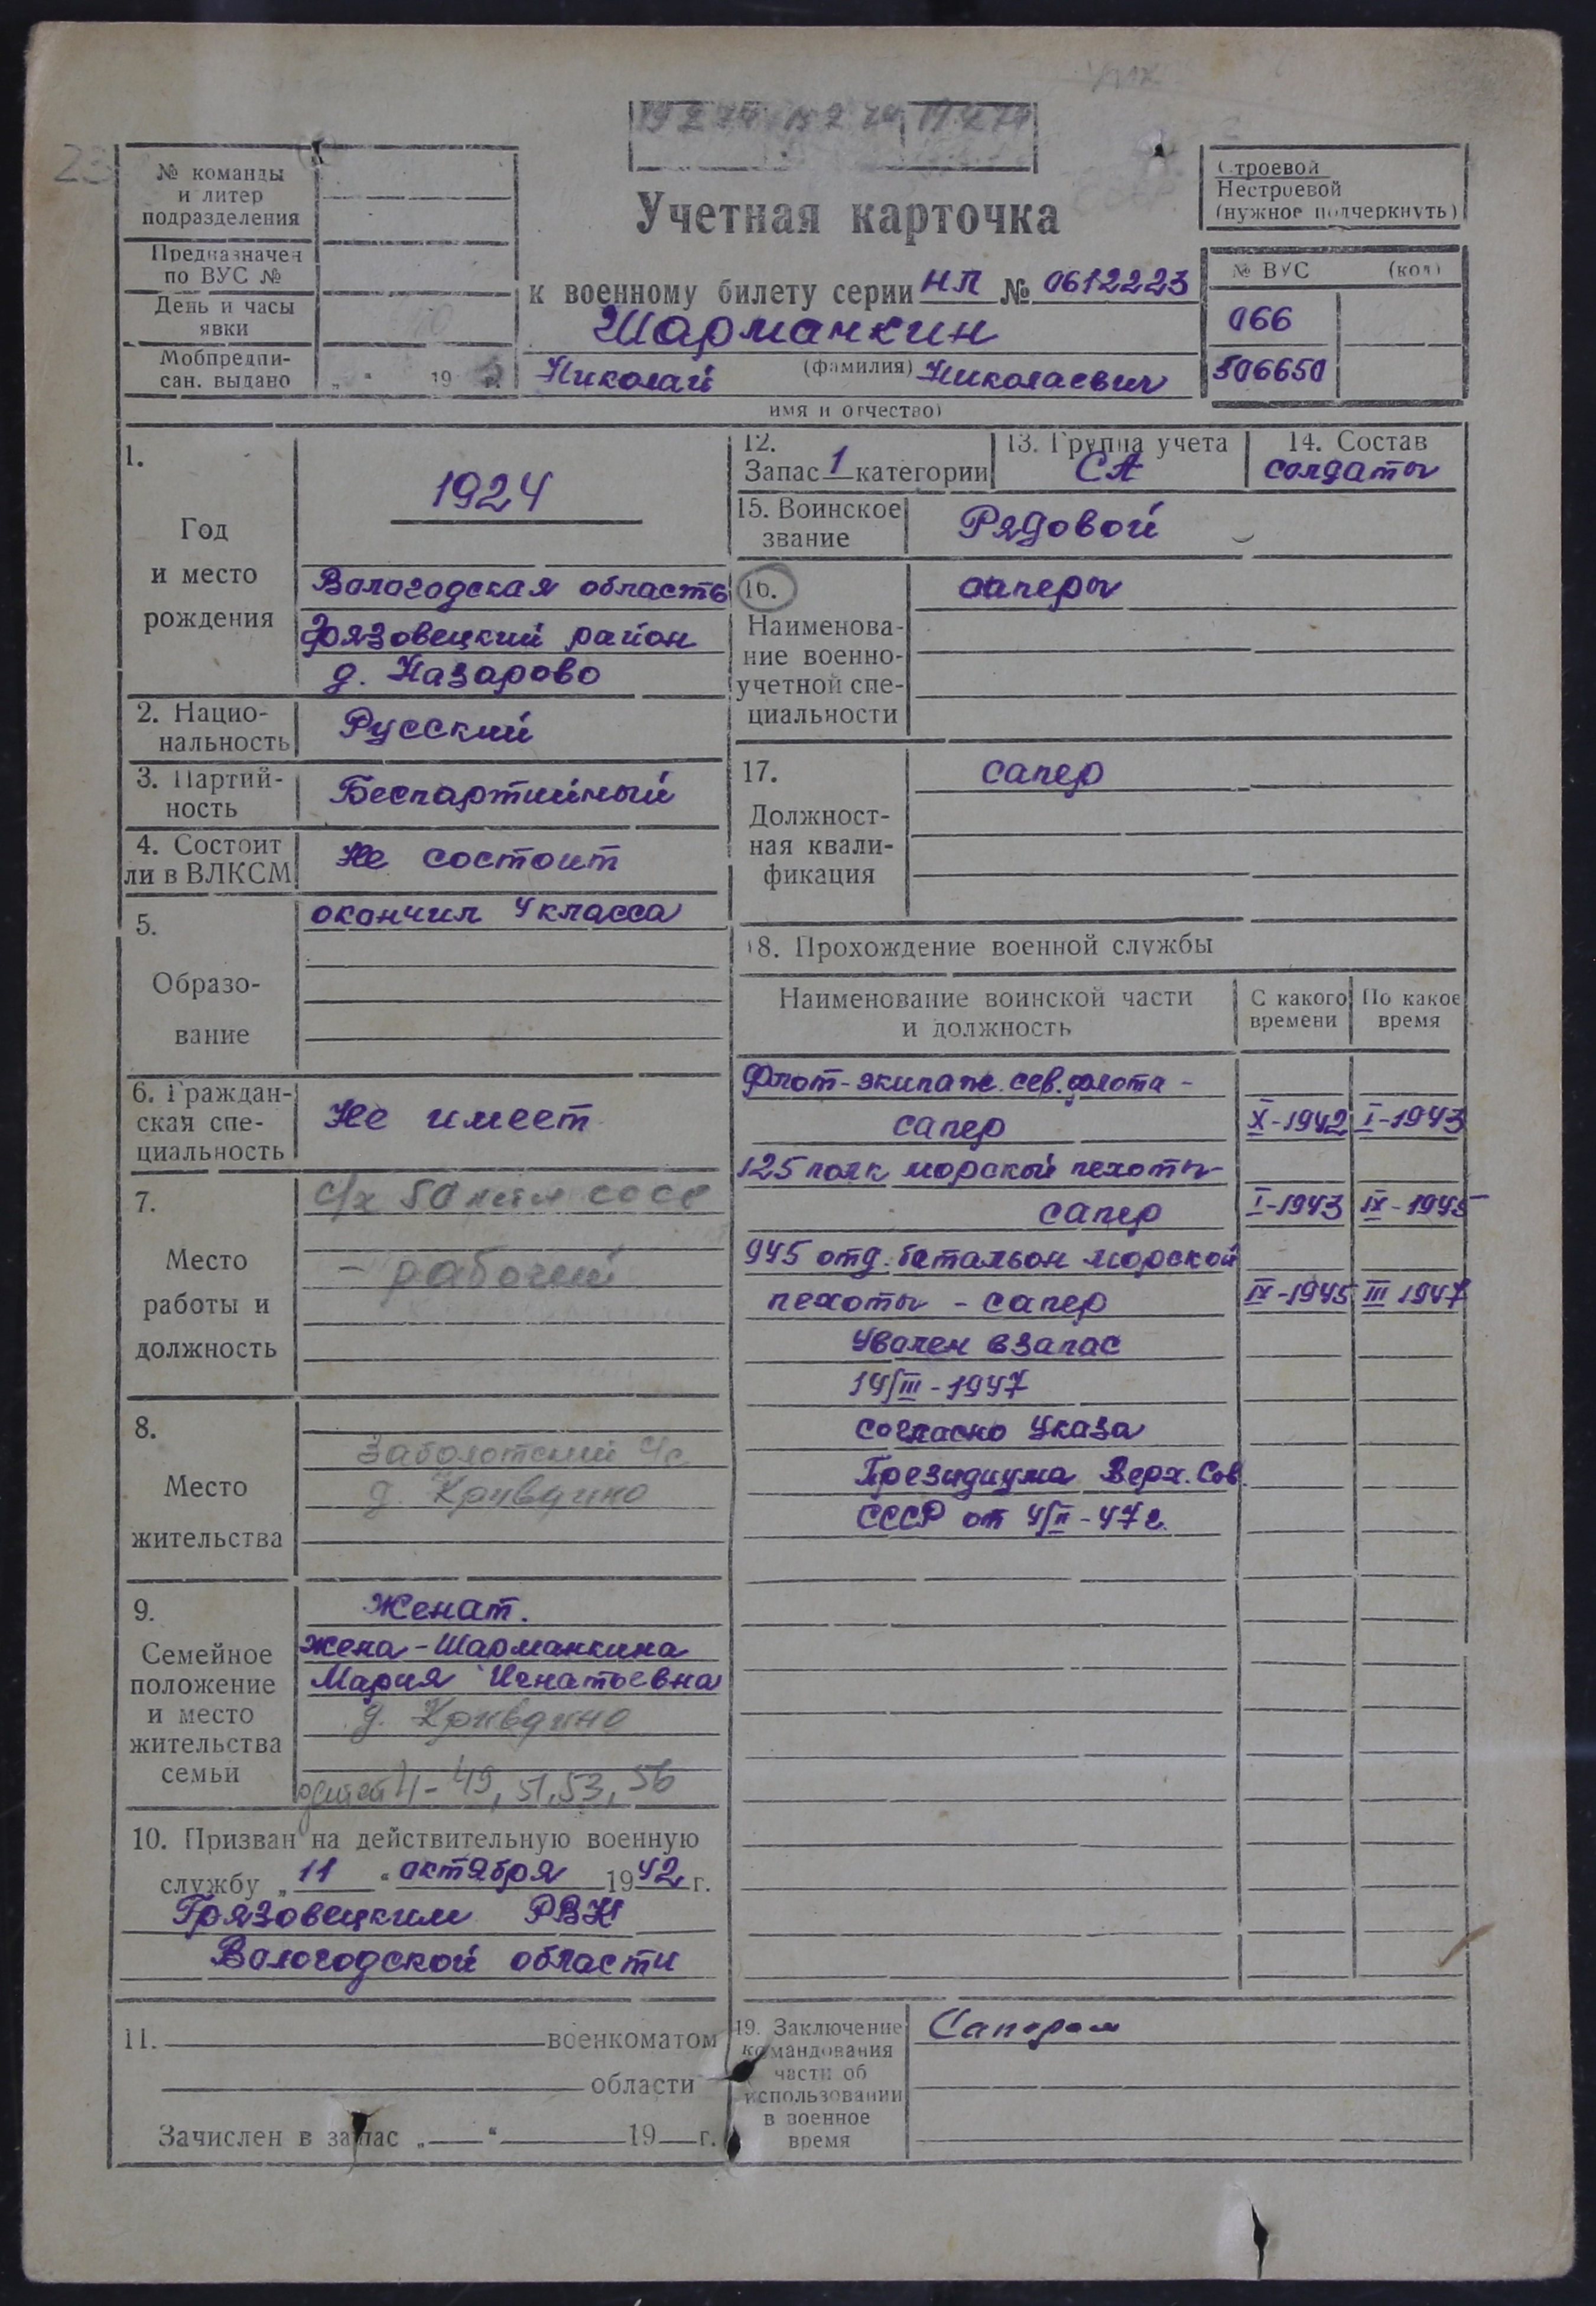 23
№ команды
и литер
подразделения
Предназначен
по ВУС №
День и часы
явки
Мобпредпи-
сан. выдано „ “ 19 г.
Учетная карточка
к военному билету серии НЛ № 0612223
Шарманкин
(фамилия)
Николай Николаевич
имя и отчество)
Строевой
Нестроевой
(нужное подчеркнуть)
№ ВУС (код)
066
506650
1.
Год
и место
рождения
1924
Вологодская область
Грязовецкий район
д. Назарово
2. Нацио-
нальность
Русский
3. Партий-
ность
Беспартийный
4. Состоит
ли в ВЛКСМ
Не состоит
5.
Образо-
вание
окончил 4 класса
6. Граждан-
ская спе-
циальность
Не имеет
7.
Место
работы и
должность
с/х 50 лет СССР
- рабочий
8.
Место
жительства
Заболотский с/с
д. Кривдино
9.
Семейное
положение
и место
жительства
семьи
Женат.
жена - Шарманкина
Мария Игнатьевна
д. Кривдино
детей 4 - 49, 51, 53, 56
10. Призван на действительную военную
службу „ 11 “ октября 1942 г.
Грязовецким РВК
Вологодской области
11. военкоматом
области
Зачислен в запас „ “ 19 г.
12.
Запас 1 категории
13. Группа учета
СА
14. Состав
солдаты
15. Воинское
звание
Рядовой
16.
Наименова-
ние военно-
учетной спе-
циальности
саперы
17.
Должност-
ная квали-
фикация
сапер
18. Прохождение военной службы
Наименование воинской части
и должность
С какого
времени
По какое
время
Флот-экипаж сев. флота -
сапер X-1942 I-1943
125 полк морской пехоты -
сапер I-1943 IX-1945
945 отд. батальон морской
пехоты - сапер IX-1945 III 1947
Уволен в запас
14/III-1947
согласно Указа
Президиума Верх. Сов.
СССР от 4/II-47 г.
19. Заключение
командования
части об
использовании
в военное
время
Сапером